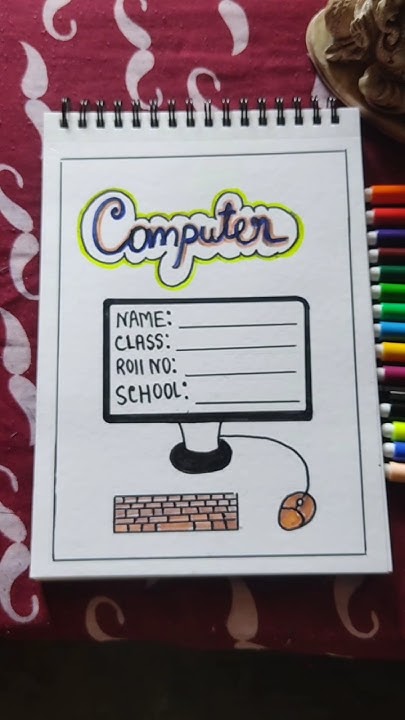 Computer
NAME:
CLASS:
ROll NO:
SCHOOL: